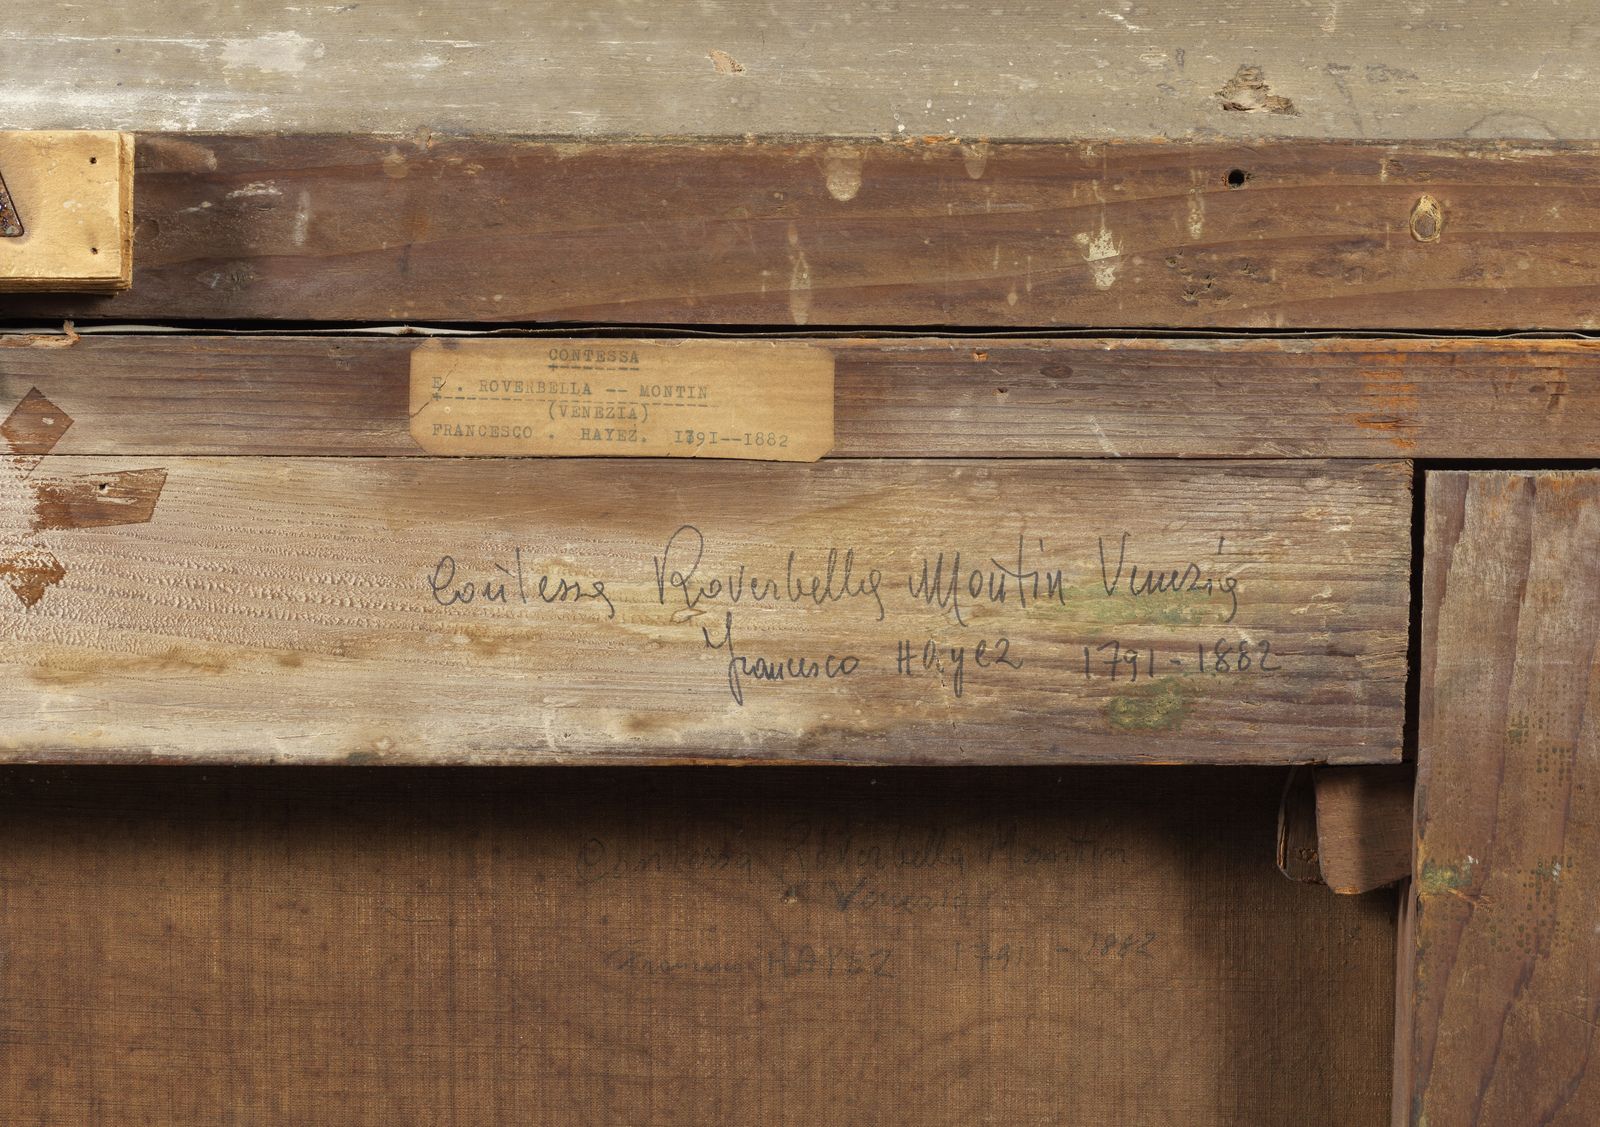 CONTESSA
E. ROVERBELLA -- MONTIN
(VENEZIA)
FRANCESCO . HAYEZ. 1791--1882
Contessa Roverbella Montin Venezia
Francesco Hayez 1791-1882
Contessa Roverbella Montin
Venezia
Francesco HAYEZ 1791-1882